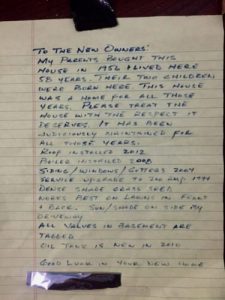 To The New Owners:
My Parents bought this
House in 1956 & lived here
58 years. Their two children,
were born here. This house
was a home for all those
years. Please treat the
house with the respect it
deserves. It has been
judiciously maintained for
all those years.
Roof installed 2012
Boiler installed 2008
Siding/Windows/Gutters 2004
Service upgrade to 200 Amp 1994
Dense shade grass seed
works best on lawns in front
& back. Sun/shade on side by
driveway
All valves in basement are
tagged
Oil tank is new in 2010
Good luck in your new home